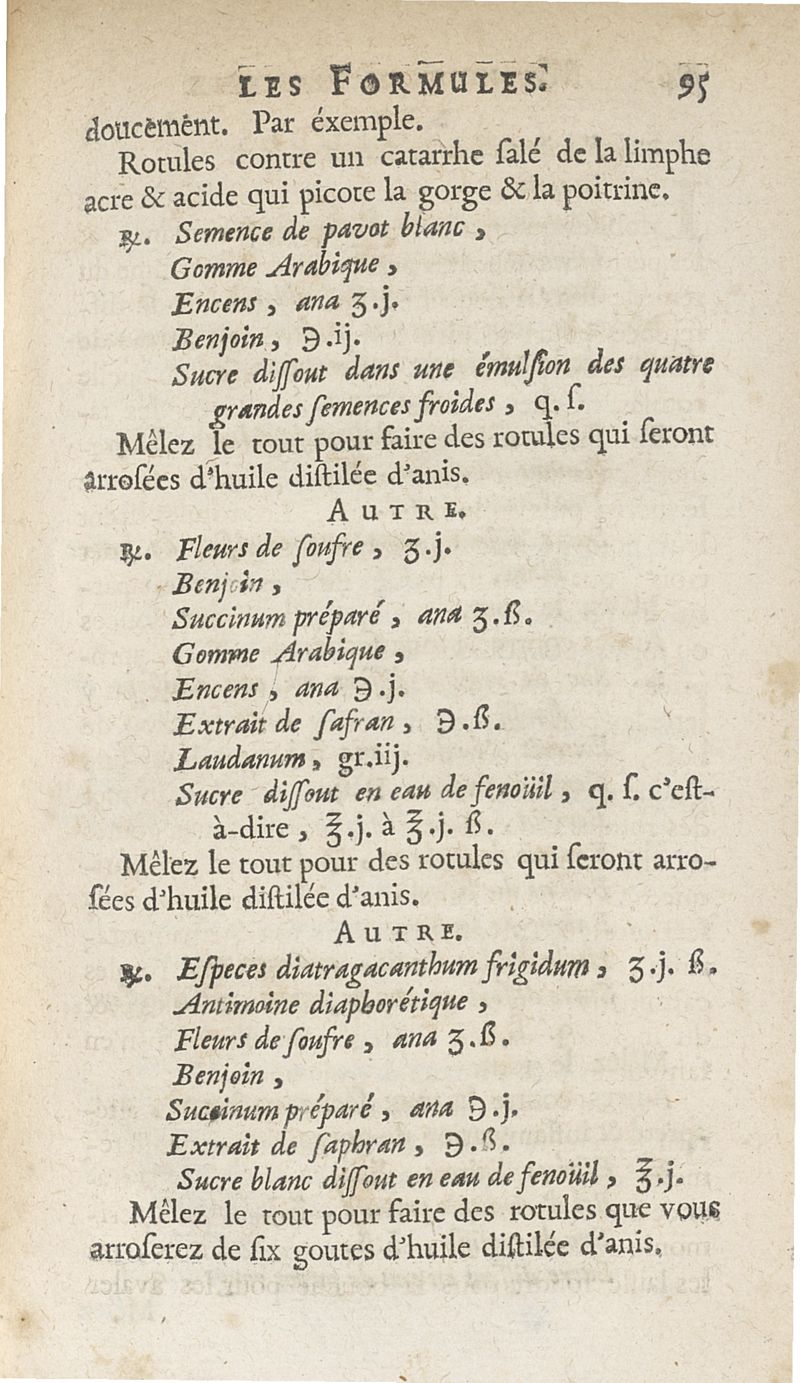 LES FORMULES. 95
doucement. Par éxemple.
Rotules contre un catarrhe ſalé de la limphe
acre & acide qui picote la gorge & la poitrine.
℞. Semence de pavot blanc,
Gomme Arabique,
Encens, ana ʒ.j.
Benjoin, ℈.ij.
Sucre diſſout dans une émulſion des quatre
grandes ſemences froides, q. ſ.
Mêlez le tout pour faire des rotules qui ſeront
arroſées d'huile diſtilée d'anis.
AUTRE.
℞. Fleurs de ſoufre, ʒ.j.
Benjoin,
Succinum préparé, ana ʒ.ß.
Gomme Arabique,
Encens, ana ℈.j.
Extrait de ſafran, ℈.ß.
Laudanum, gr.iij.
Sucre diſſout en eau de fenoüil, q. ſ. c'eſt-
à-dire, ℥.j. à ℥.j. ß.
Mêlez le tout pour des rotules qui ſeront arro-
ſées d'huile diſtilée d'anis.
AUTRE.
℞. Eſpeces diatragacanthum frigidum, ʒ.j. ß.
Antimoine diaphorétique,
Fleurs de ſoufre, ana ʒ.ß.
Benjoin,
Succinum préparé, ana ℈.j.
Extrait de ſaphran, ℈.ß.
Sucre blanc diſſout en eau de fenoüil, ℥.j.
Mêlez le tout pour faire des rotules que vous
arroſerez de ſix goutes d'huile diſtilée d'anis.